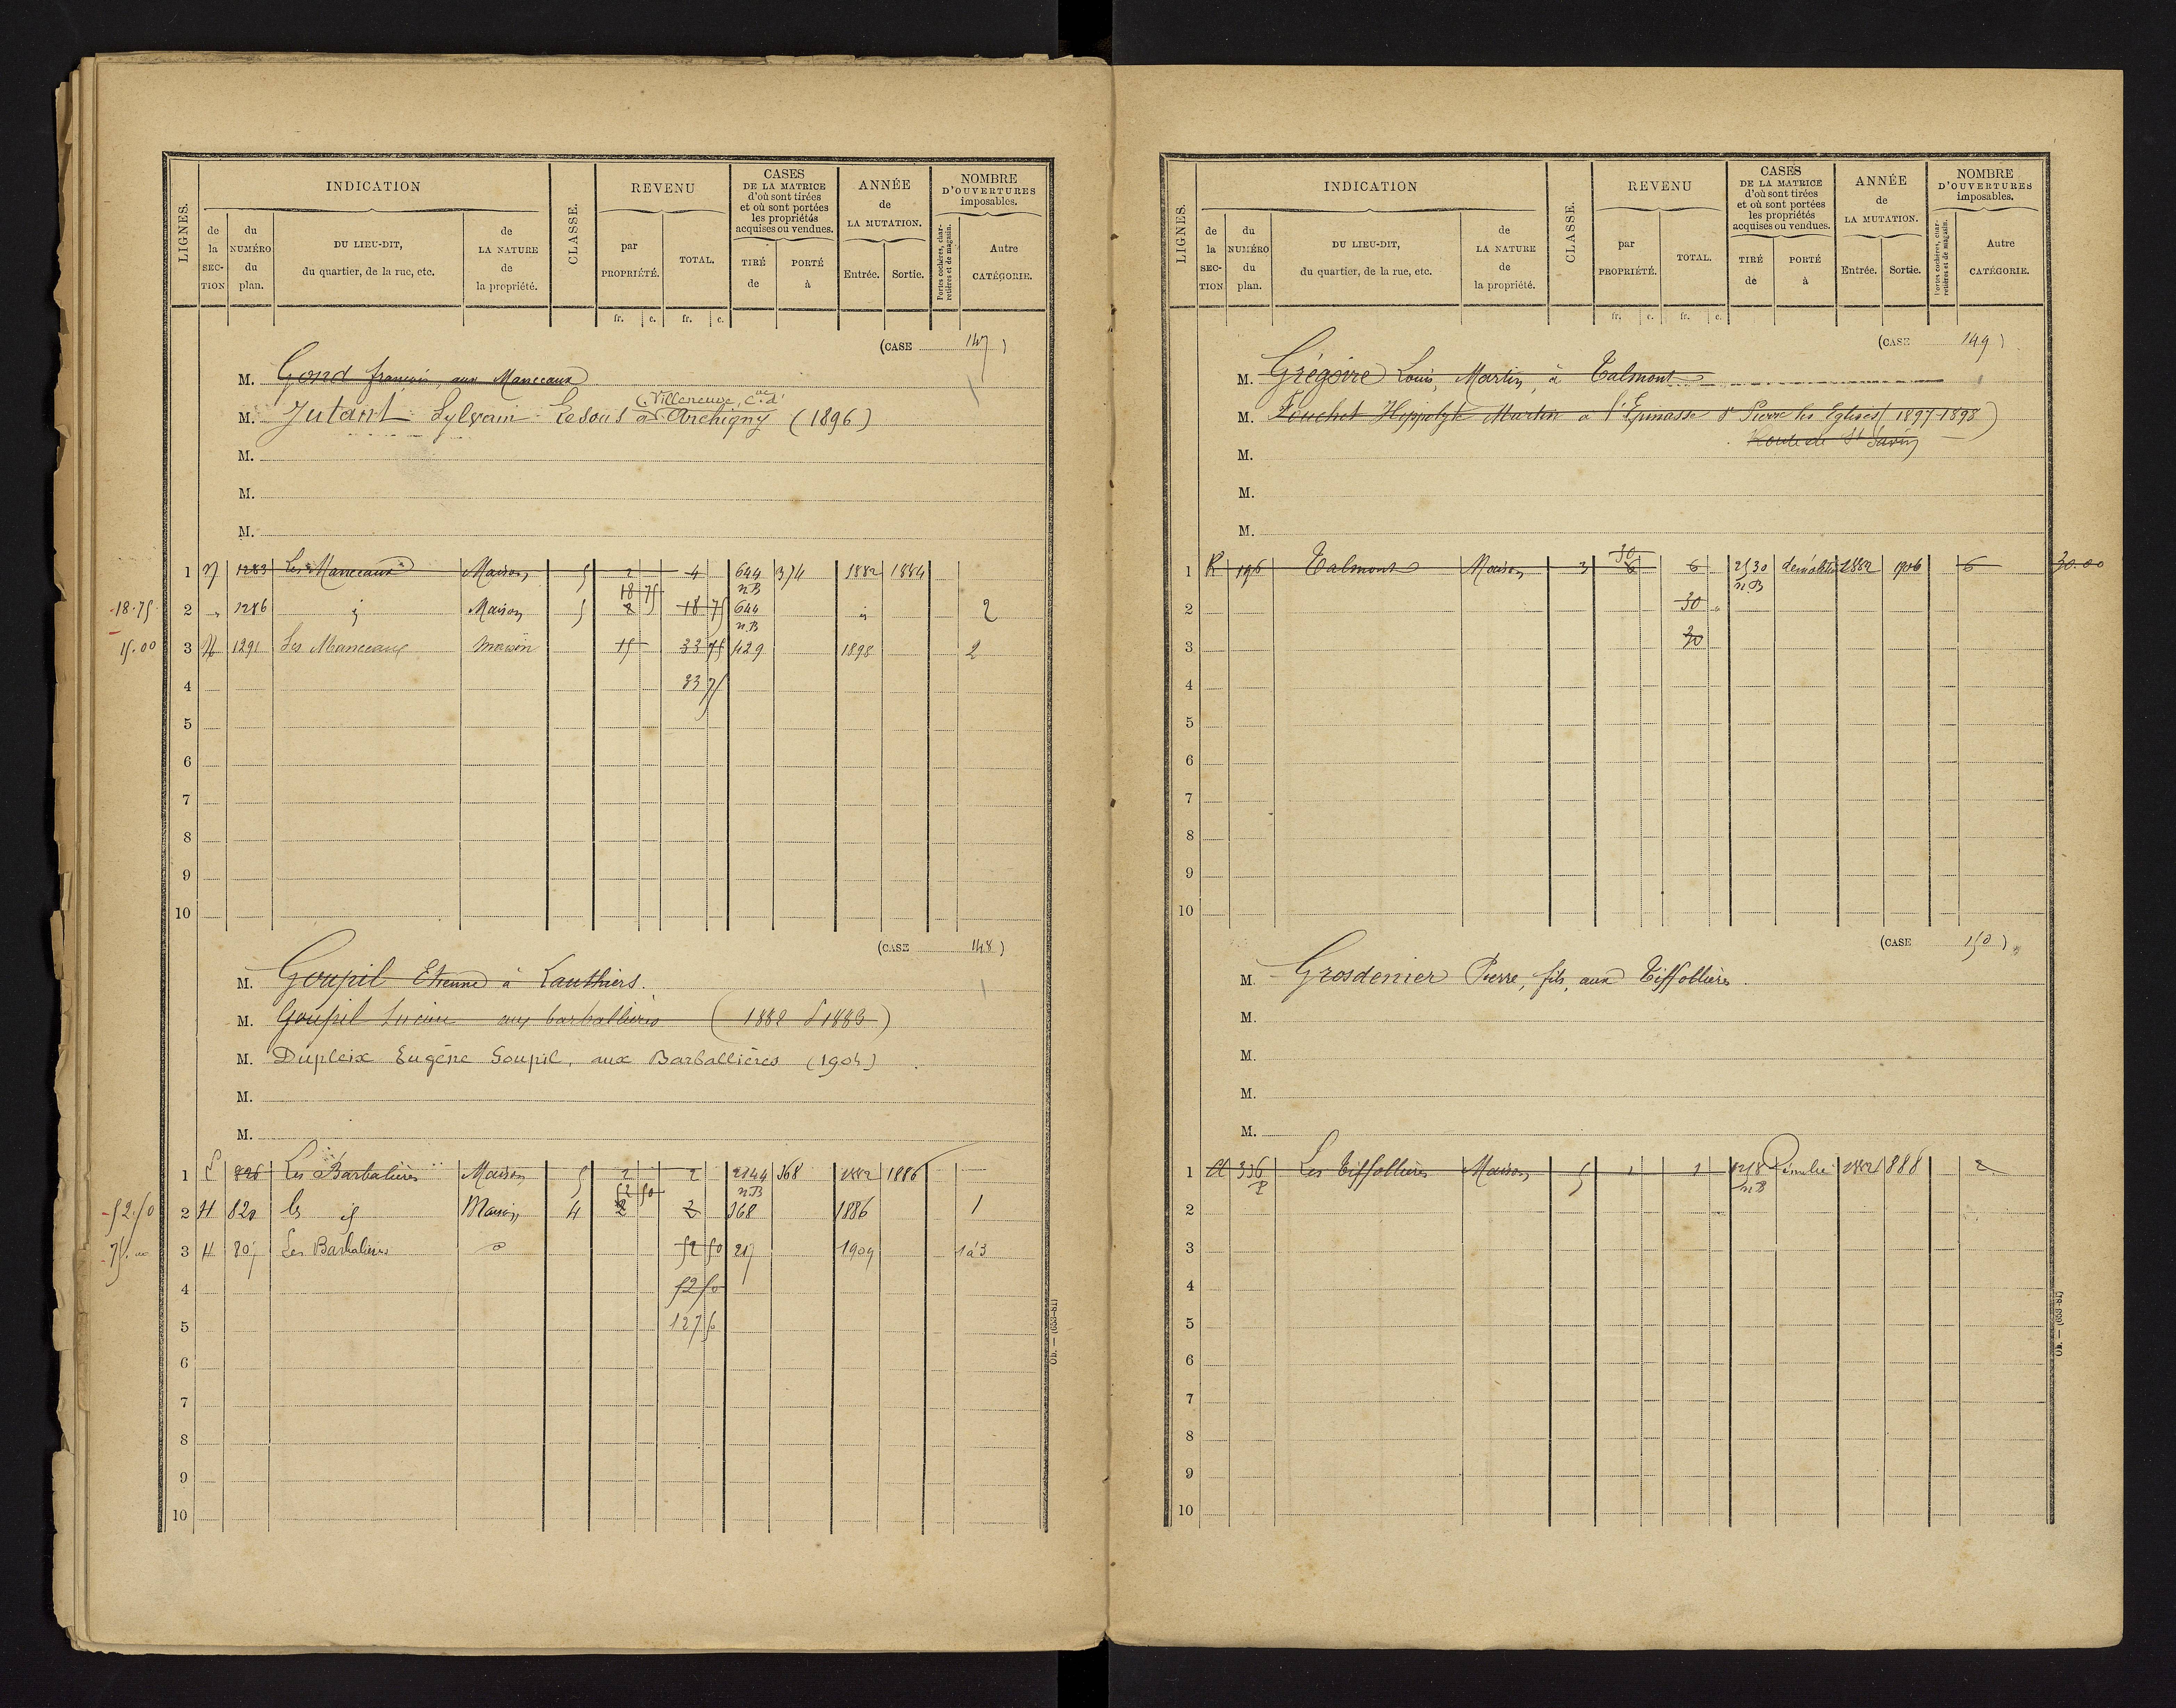 LIGNES. INDICATION CLASSE. REVENU CASES DE LA MATRICE d'où sont tirées et où sont portées les propriétés acquises ou vendues. ANNÉE de LA MUTATION. NOMBRE D'OUVERTURES imposables.
de la SECTION du NUMÉRO du plan. DU LIEU-DIT, du quartier, de la rue, etc. de LA NATURE de la propriété. par PROPRIÉTÉ. TOTAL. TIRÉ de PORTÉ à Entrée. Sortie. Portes cochères, charretières et de magasin. Autre CATÉGORIE.
fr. c. fr. c.
(CASE 147)
M. Gond françois, aux Manceaux
(Villeneuve, Cne d'
M. Jutant Sylvain Lesous à Archigny (1896)
M.
M.
M.
1 1283 Les Manceaux Maison 5 2 4 644 374 1882 1884
18 75 n.B
18.75 2 1286 id Maison 5 2 18 75 644 id 2
n.B
15.00 3 H 1291 Les Manceaux maison 15 33 75 429 1898 2
4 33 75
5
6
7
8
9
10
(CASE 148)
M. Goupil Etienne à Lauthiers.
M. Goupil aux barballières (1882 S 1883)
M. Dupleix Eugène Goupil, aux Barballières (1904)
M.
M.
1 826 Les Barbalières Maison 5 2 2 2144 368 1882 1886
52 50 n.B
52.50 2 H 820 les id Maison 4 2 2 368 1886 1
75. 3 H 807 Les Barbalières do 52 50 217 1909 1 à 3
4 52 50
5 127 50
6
7
8
9
10
Ob. — (653-81)
LIGNES. INDICATION CLASSE. REVENU CASES DE LA MATRICE d'où sont tirées et où sont portées les propriétés acquises ou vendues. ANNÉE de LA MUTATION. NOMBRE D'OUVERTURES imposables.
de la SECTION du NUMÉRO du plan. DU LIEU-DIT, du quartier, de la rue, etc. de LA NATURE de la propriété. par PROPRIÉTÉ. TOTAL. TIRÉ de PORTÉ à Entrée. Sortie. Portes cochères, charretières et de magasin. Autre CATÉGORIE.
fr. c. fr. c.
(CASE 149)
M. Grégoire Louis, Martin, à Talmont
M. Fouchet Hippolyte Martin à l'Epinasse St Pierre les Eglises (1897-1898)
Route de St Savin
M.
M.
M.
30
1 K 196 Talmont Maison 3 6 6 2530 démolition 1882 1906 6 30.00
n.B
2 30
3 30
4
5
6
7
8
9
10
(CASE 150)
M. Grosdenier Pierre, fils, aux Tiffollières.
M.
M.
M.
M.
1 A 336 Les Tiffollières Maison 5 1 1 1218 Démolie 1882 1888 2
P n.B
2
3
4
5
6
7
8
9
10
Ob. — (653-81)